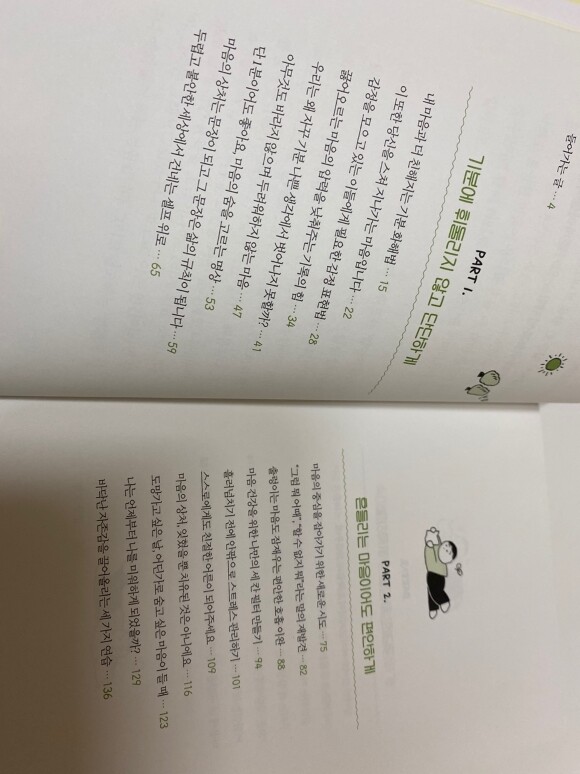 들어가는 글 … 4
PART 1.
기분에 휘둘리지 않고 단단하게
내 마음과 더 친해지는 기분 화해법 … 15
이 또한 당신을 스쳐 지나가는 마음입니다 … 22
감정을 모으고 있는 이들에게 필요한 감정 표현법 … 28
끓어오르는 마음의 압력을 낮춰주는 기록의 힘 … 34
우리는 왜 자꾸 기분 나쁜 생각에서 벗어나지 못할까? … 41
아무것도 바라지 않으며 두려워하지 않는 마음 … 47
단 1분이어도 좋아요, 마음의 숨을 고르는 명상 … 53
마음의 상처는 문장이 되고 그 문장은 삶의 규칙이 됩니다 … 59
두렵고 불안한 세상에서 건네는 셀프 위로 … 65
PART 2.
흔들리는 마음이어도 편안하게
마음의 중심을 잡아가기 위한 새로운 시도 … 75
"그럼 뭐 어때", "할 수 없지 뭐"라는 말의 재발견 … 82
출렁이는 마음도 잠재우는 편안한 호흡 이완 … 88
마음 건강을 위한 나만의 세 칸 필터 만들기 … 94
흘러넘치기 전에 안팎으로 스트레스 관리하기 … 101
스스로에게도 친절한 어른이 되어주세요 … 109
마음의 상처, 잊혔을 뿐 치유된 것은 아니에요 … 116
도망가고 싶은 날, 어딘가로 숨고 싶은 마음이 들 때 … 123
나는 언제부터 나를 미워하게 되었을까? … 129
바닥난 자존감을 끌어올리는 세 가지 연습 … 136